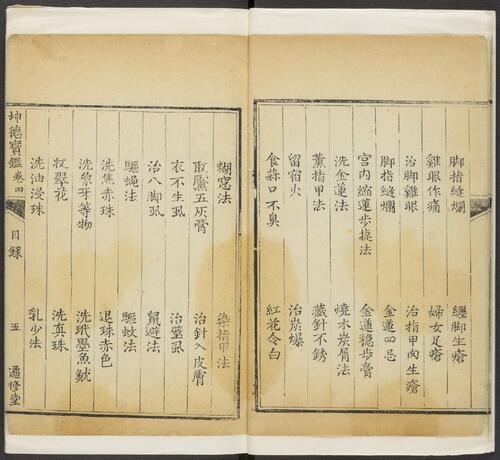 脚指縫爛 纏脚生瘡
雞眼作痛 婦女足瘡
治脚雞眼 治指甲內生瘡
脚指縫爛 金蓮四忌
宮內縮蓮步捷法 金蓮穩步膏
洗金蓮法 燒木炭屑法
薰指甲法 藏針不銹
留宿火 治炭爆
食蒜口不臭 紅花令白
糊窓法 染指甲法
取黶五灰膏 治針入皮膚
衣不生虱 治壁虱
治八脚虱 鼠避法
驅蠅法 驅蚊法
洗焦赤珠 退珠赤色
洗象牙等物 洗玳墨魚魫
收翠花 洗真珠
洗油浸珠 乳少法
坤德寶鑑 卷四 目錄 五 適修堂